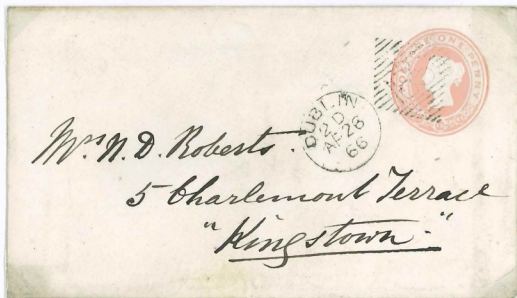 POSTAGE ONE PENNY
DUBLIN
2 D
AP 26
66
Mrs. N. D. Roberts.
5 Charlemont Terrace
"Kingstown."